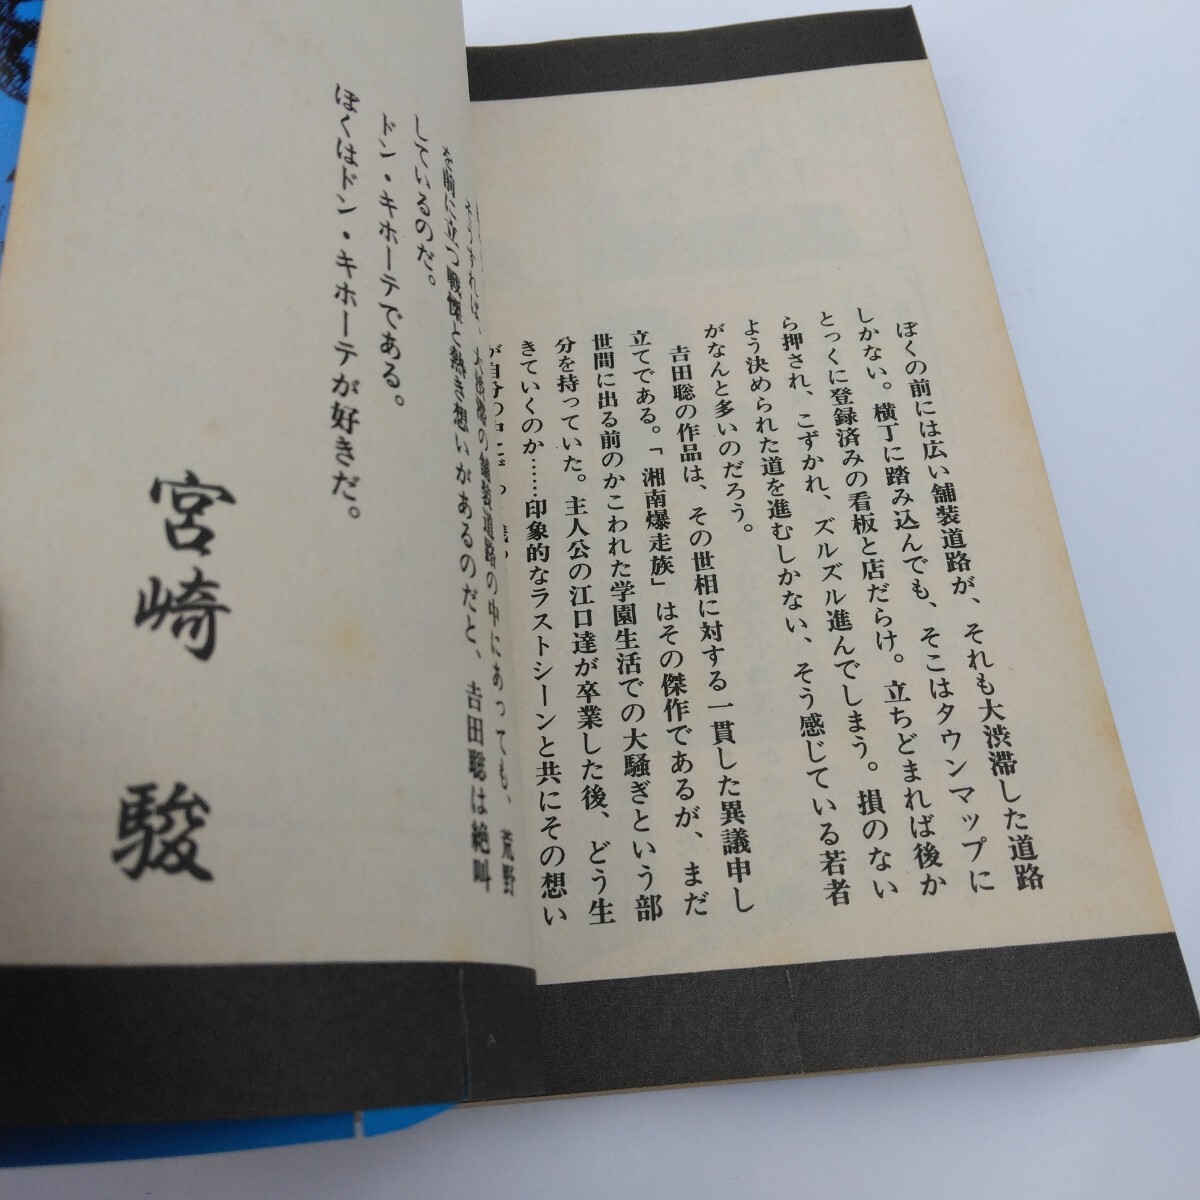 ぼくの前には広い舗装道路が、それも大渋滞した道路
しかない。横丁に踏み込んでも、そこはタウンマップに
とっくに登録済みの看板と店だらけ。立ちどまれば後か
ら押され、こずかれ、ズルズル進んでしまう。損のない
よう決められた道を進むしかない、そう感じている若者
がなんと多いのだろう。
吉田聡の作品は、その世相に対する一貫した異議申し
立てである。「湘南爆走族」はその傑作であるが、まだ
世間に出る前のかこわれた学園生活での大騒ぎという部
分を持っていた。主人公の江口達が卒業した後、どう生
きていくのか……印象的なラストシーンと共にその想い
が自分の中に
そうすれば、大渋滞の舗装道路の中にあっても、荒野
を前に立つ戦慄と熱き想いがあるのだと、吉田聡は絶叫
しているのだ。
ドン・キホーテである。
ぼくはドン・キホーテが好きだ。
宮崎 駿